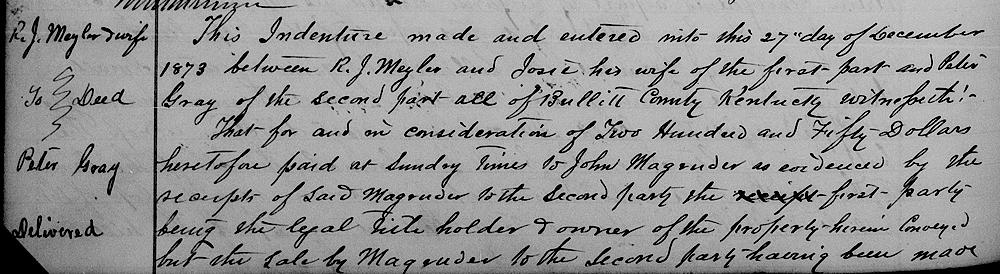 R. J. Meyler & wife
To Deed
Peter Gray
Delivered
This Indenture made and entered into this 27th day of December
1873 between R. J. Meyler and Josie his wife of the first part and Peter
Gray of the second part all of Bullitt County Kentucky witnesseth:-
That for and in consideration of Two Hundred and Fifty Dollars
heretofore paid at Sundry Times to John Magruder as evidenced by the
receipts of said Magruder to the second party the first party
being the legal title holder & owner of the property herein conveyed
but the sale by Magruder to the second party having been made